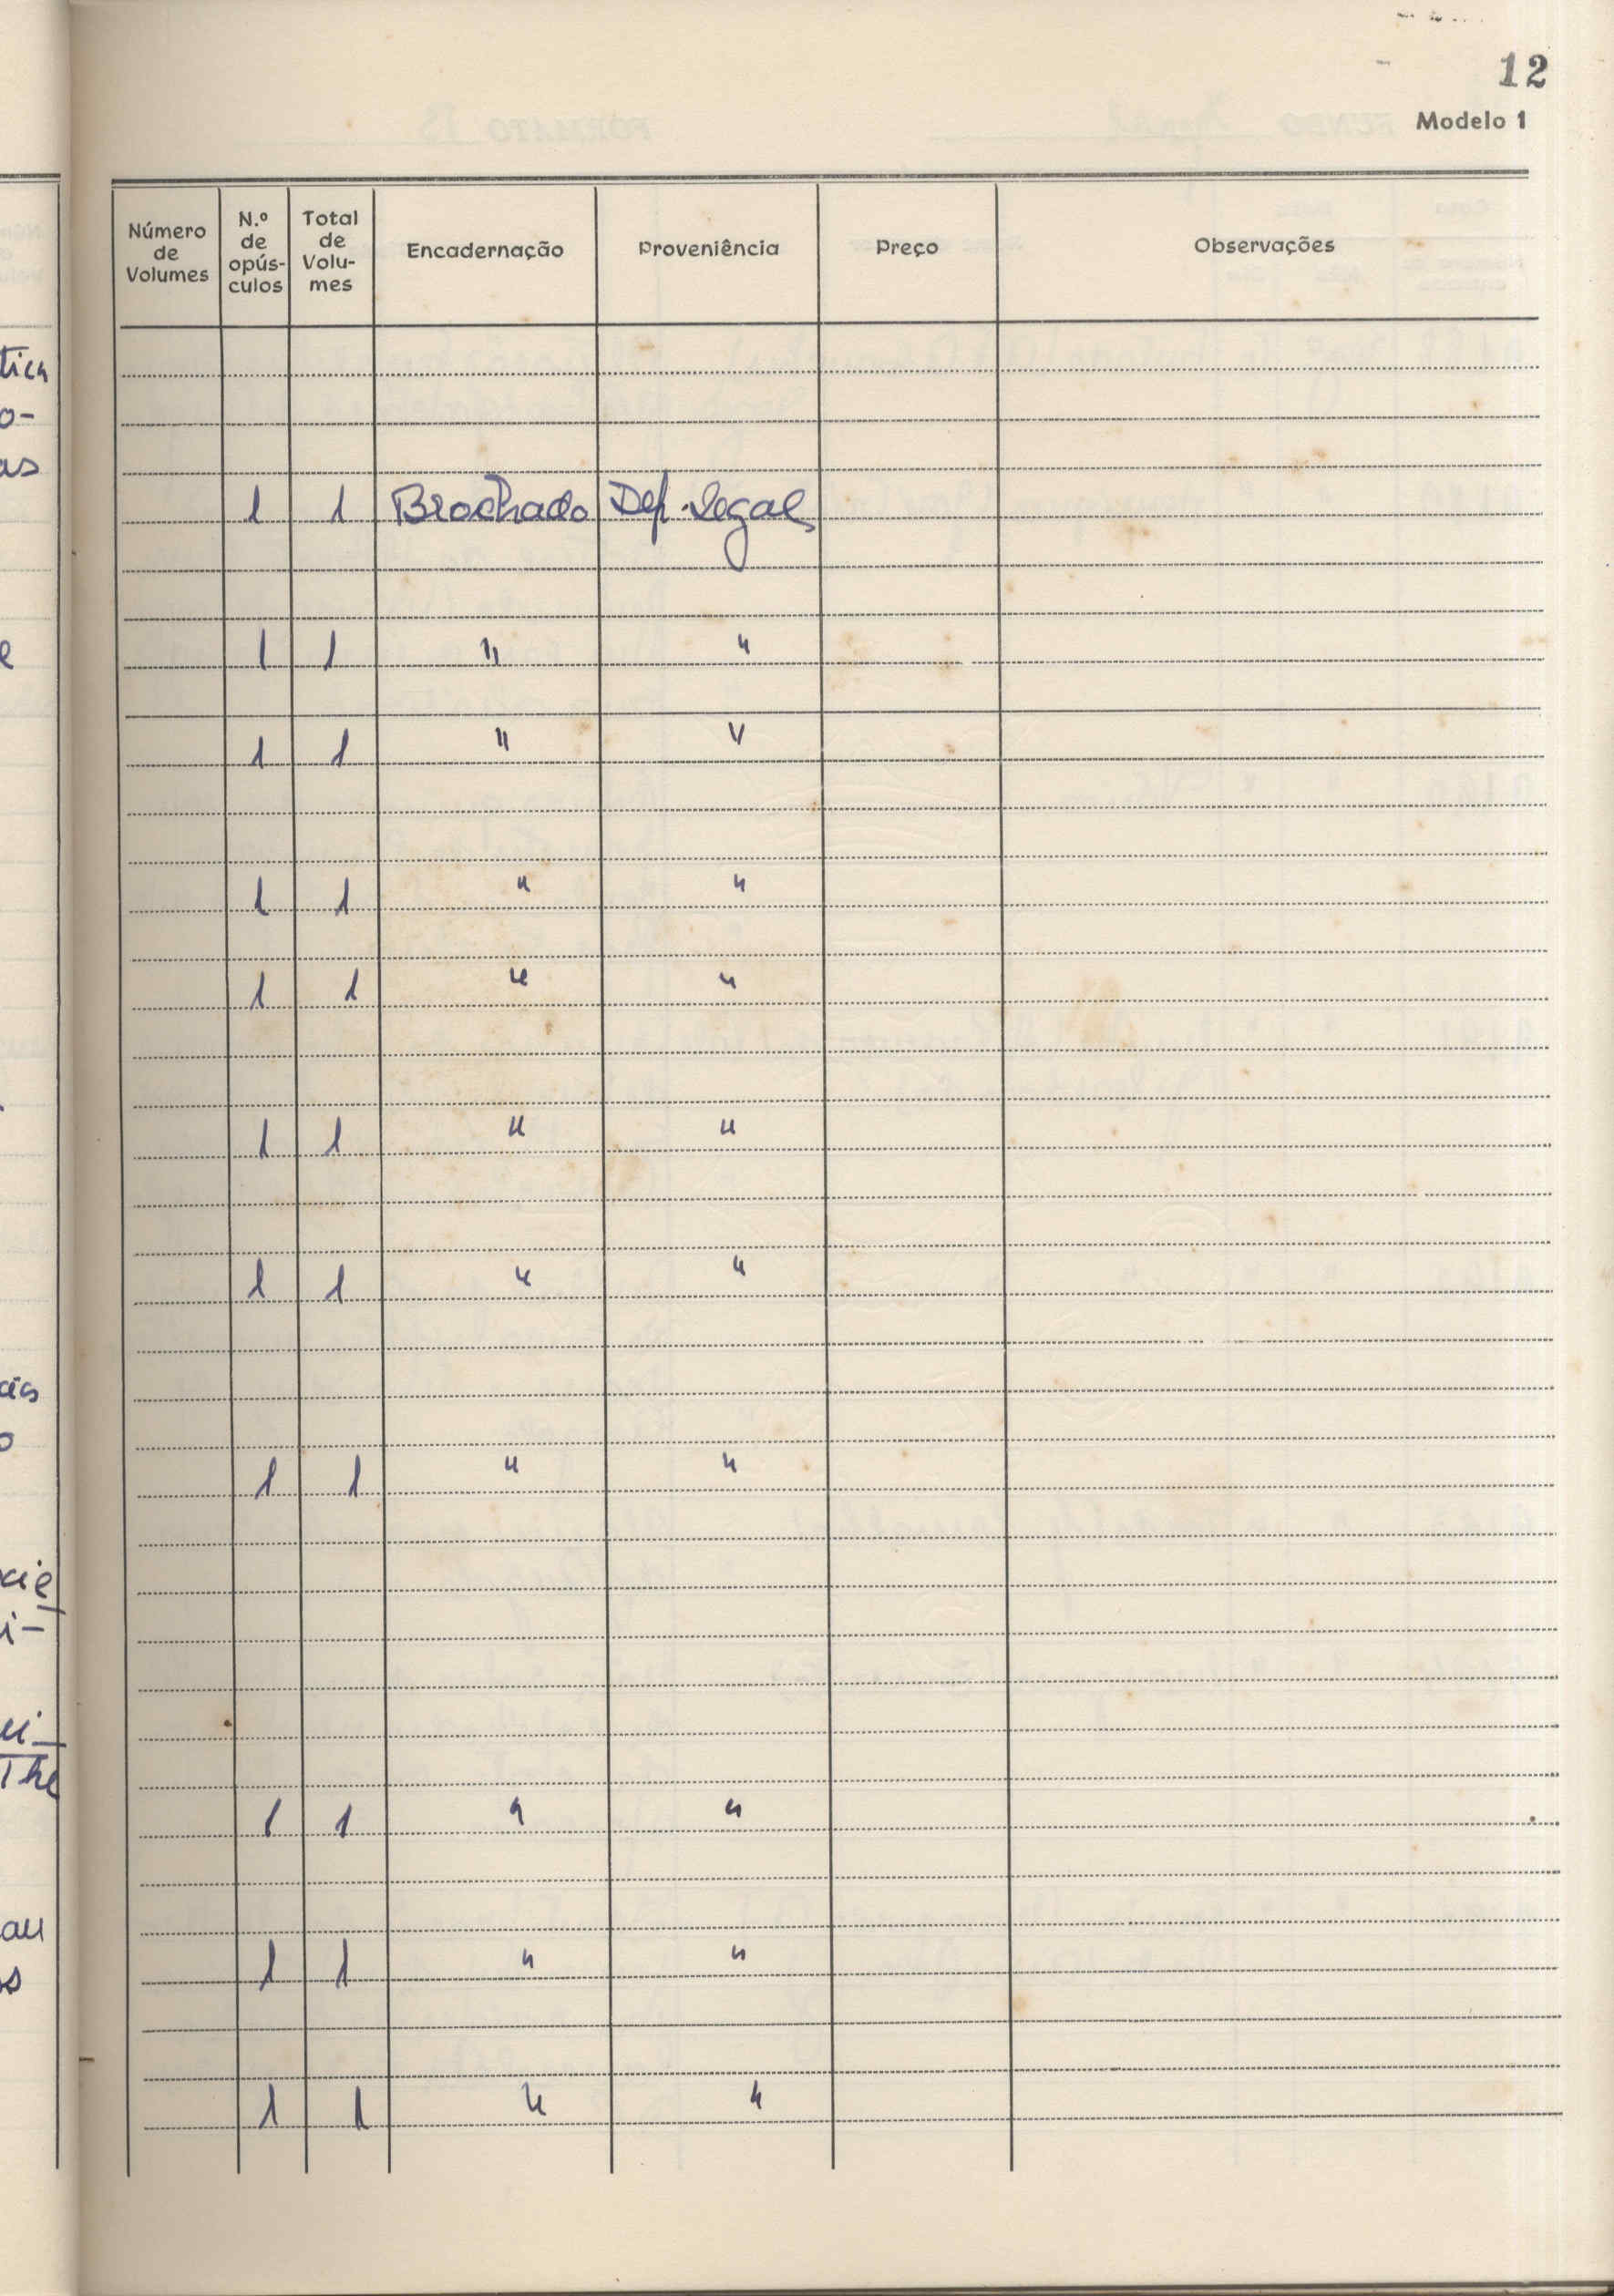 12
Modelo 1
Número de Volumes
N.º de opús- culos
Total de Volu- mes
Encadernação
Proveniência
Preço
Observações
tica
o-
as
1 1 Brochado Dep. Legal
e
1 1 " "
1 1 " "
1 1 " "
1 1 " "
1 1 " "
1 1 " "
o
1 1 " "
i-
The
1 1 " "
au
1 1 " "
os
1 1 " "